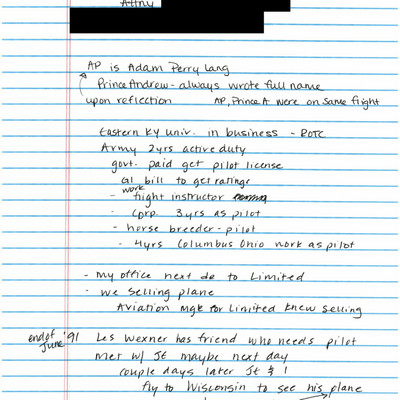 Attny
AP is Adam Perry Lang
Prince Andrew - always wrote full name
upon reflection AP, Prince A were on same flight
Eastern Ky Univ. in business - ROTC
Army 2yrs active duty
govt. paid get pilot license
GI bill to get ratings
- work flight instructor
- Corp. 3yrs as pilot
- horse breeder - pilot
- 4yrs Columbus Ohio work as pilot
- my office next do to Limited
- we selling plane
Aviation Mgr for Limited knew selling
end of June '91 Les Wexner has friend who needs pilot
met w/ JE maybe next day
couple days later JE & I
fly to Wisconsin to see his plane